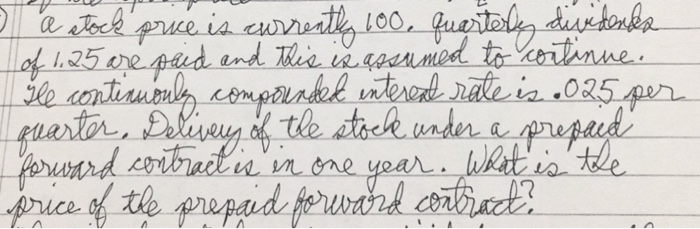 a stock price is currently 100. quarterly dividends
of 1.25 are paid and this is assumed to continue.
The continuously compounded interest rate is .025 per
quarter. Delivery of the stock under a prepaid
forward contract is in one year. What is the
price of the prepaid forward contract?